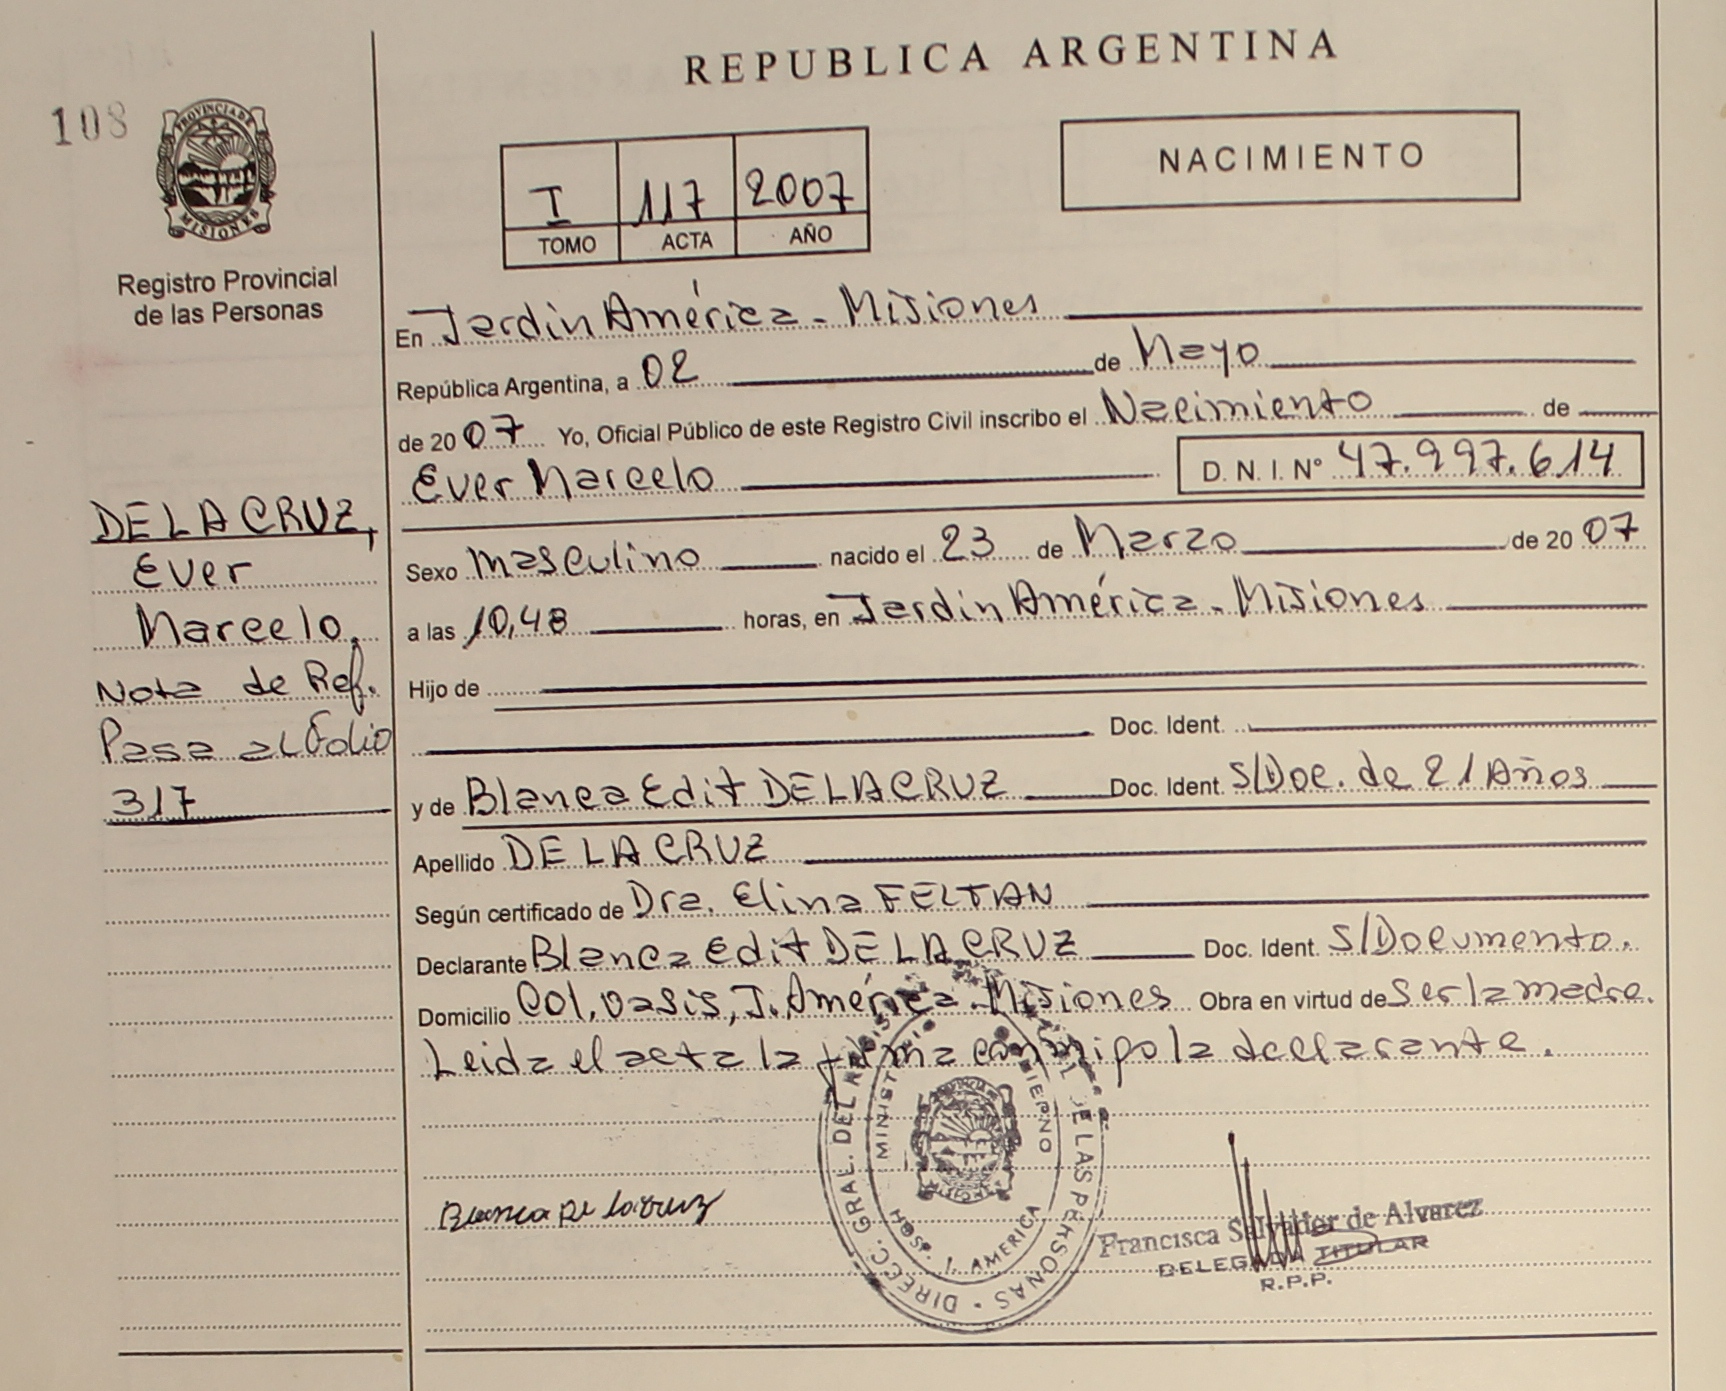 REPUBLICA ARGENTINA
108
PROVINCIA DE MISIONES
Registro Provincial
de las Personas
I 117 2007
TOMO ACTA AÑO
NACIMIENTO
En Jardín América - Misiones
República Argentina, a 02 de Mayo
de 2007 Yo, Oficial Público de este Registro Civil inscribo el Nacimiento de
Ever Marcelo D. N. I. Nº 47.997.614
Sexo Masculino nacido el 23 de Marzo de 2007
a las 10,48 horas, en Jardín América - Misiones
Hijo de
Doc. Ident.
y de Blanca Edit DE LA CRUZ Doc. Ident. S/Doc. de 21 Años
Apellido DE LA CRUZ
Según certificado de Dra. Elina FELTAN
Declarante Blanca Edit DE LA CRUZ Doc. Ident. S/Documento.
Domicilio Col. Oasis, J. América - Misiones Obra en virtud de Ser la madre.
Leida el acta la firma conmigo la declarante.
DE LA CRUZ,
Ever
Marcelo.
Nota de Ref.
Pasa al Folio
317
Blanca De la Cruz
DIRECC. GRAL. DEL REGISTRO DE LAS PERSONAS
HOSP. J. AMERICA
Francisca Salvador de Alvarez
DELEGADA TITULAR
R.P.P.